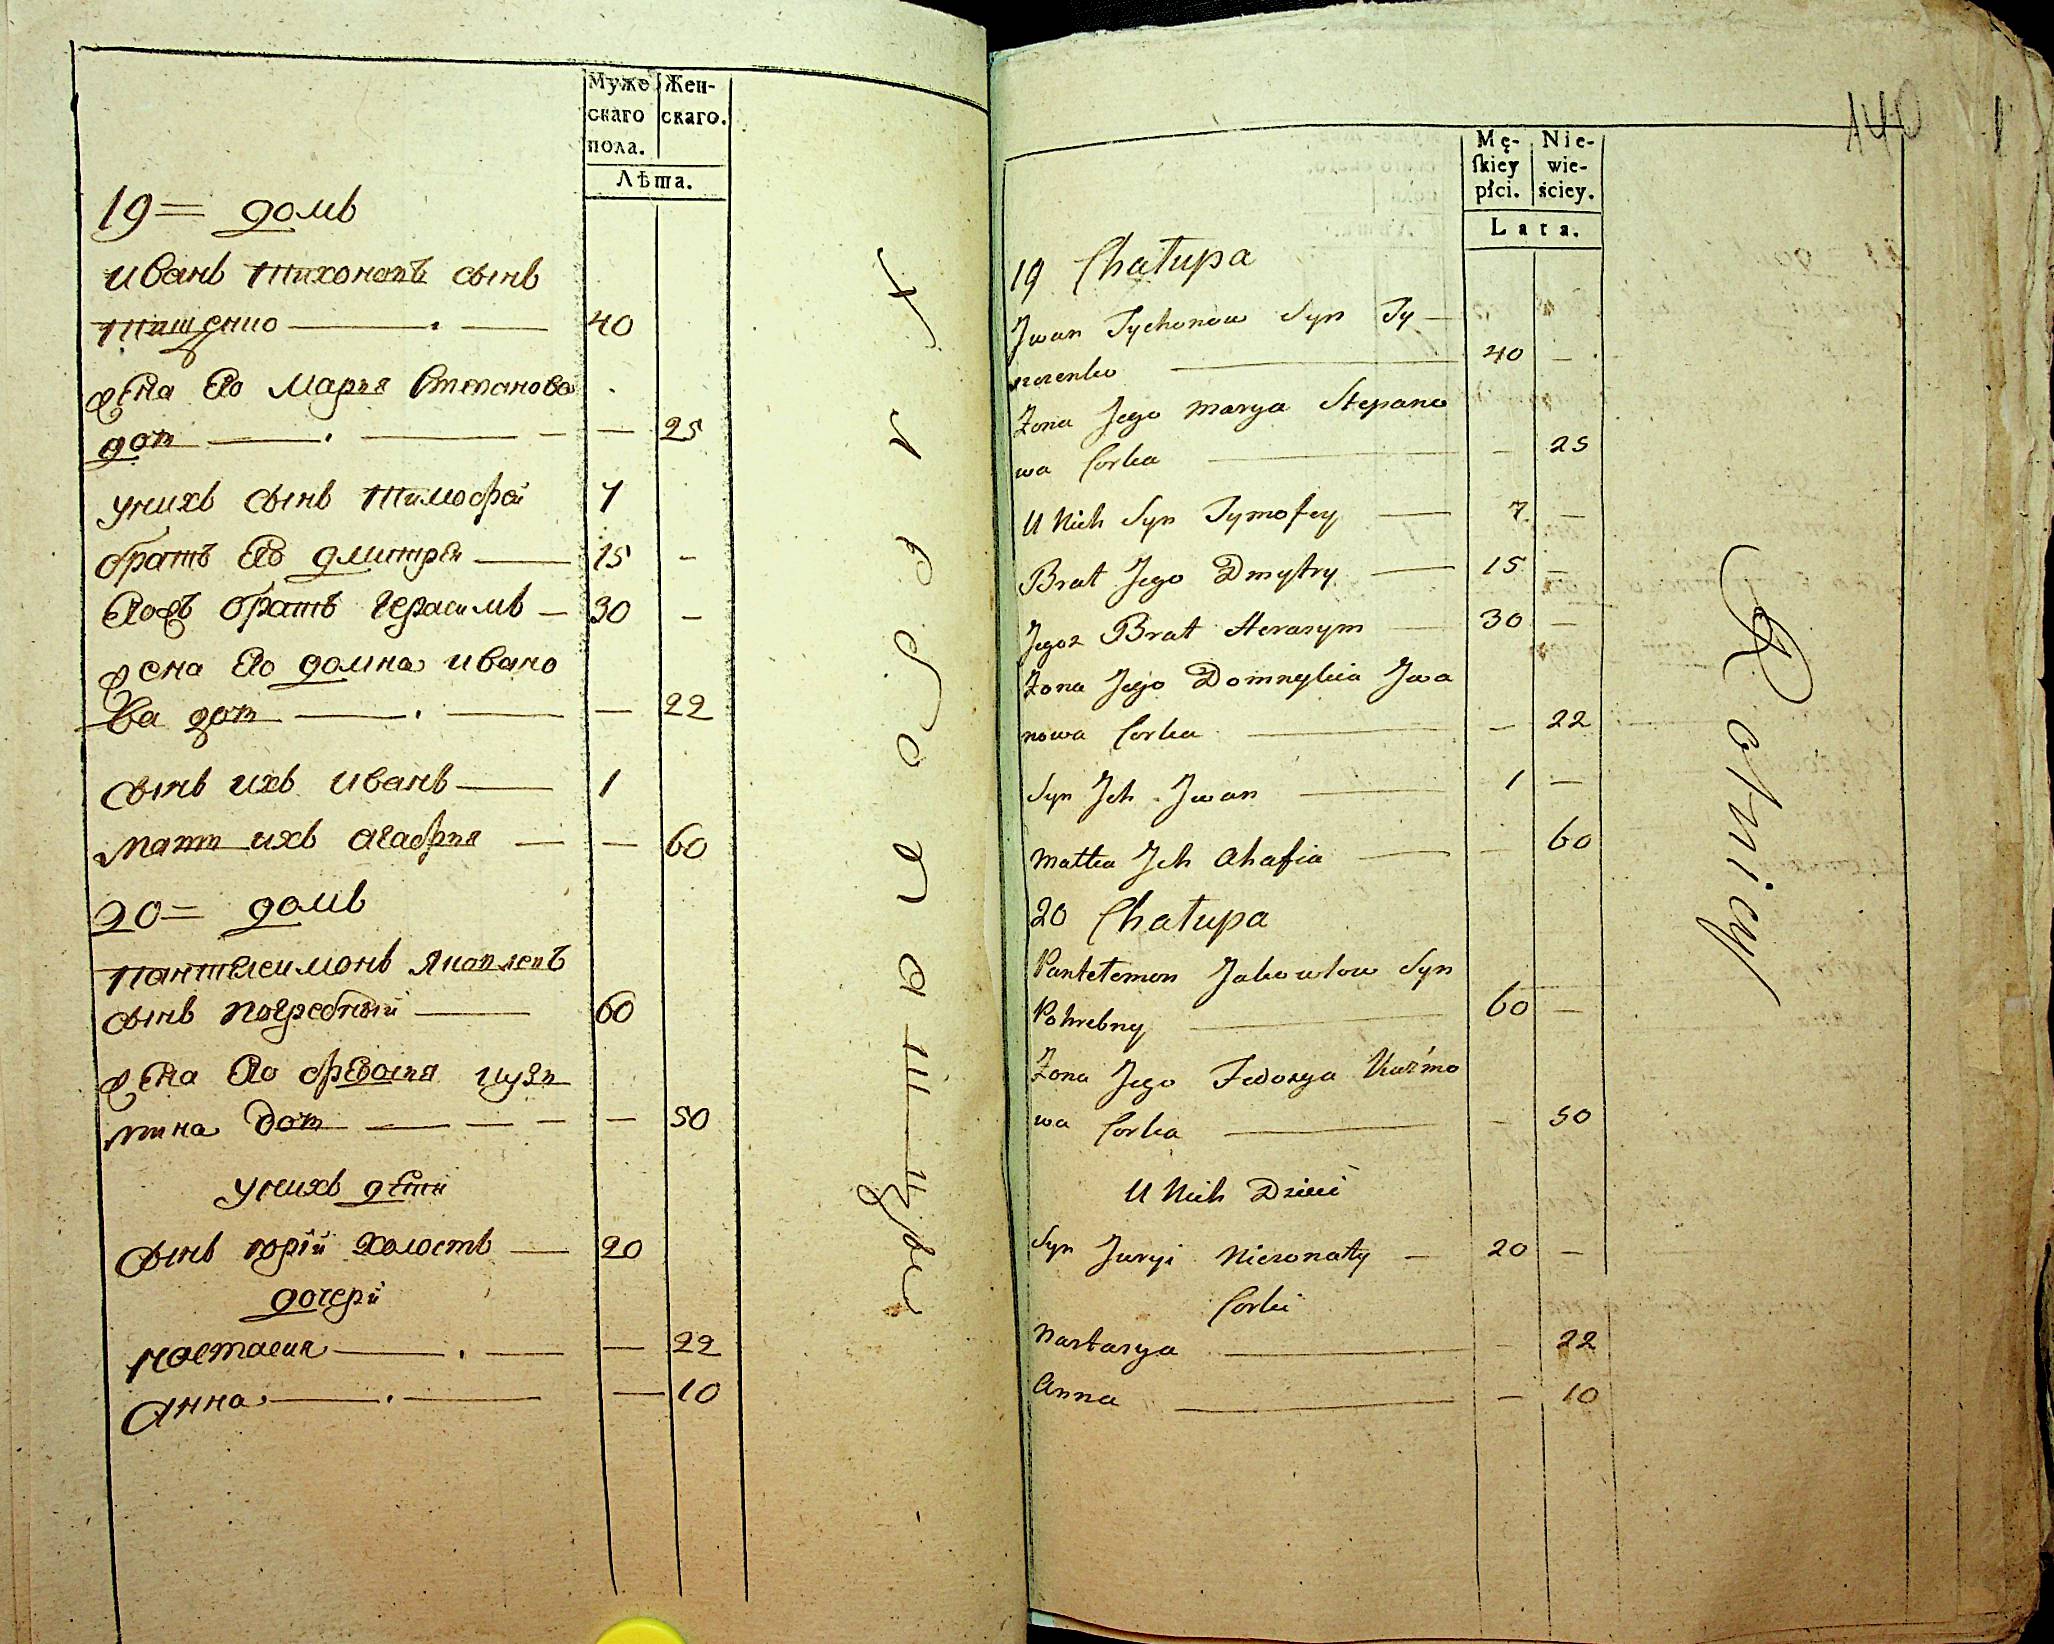 Муже
скаго
пола.
Жен-
скаго.
Лѣта.
19= домъ
Иванъ Тихоновъ сынъ
Тищенко 40
жена Его Марья Степанова
дот 25
у нихъ сынъ Тимофей 7
братъ Его дмитрей 15 -
Егожъ братъ Герасимъ 30 -
жена Его домна Ивано
ва дот 22
сынъ ихъ Иванъ 1
мать ихъ Агафия 60
20= домъ
Пантелеимонъ Яковлевъ
сынъ Погребный 60
жена Его Федосия Кузм
мина дот 50
у нихъ дети
сынъ Юрій холостъ 20
дочери
Настасия 22
Анна 10
хлебопашцы
140
Mę-
ſkiey
płci.
Nie-
wie-
ściey.
Lata.
19 Chałupa
Jwan Tychonow Syn Ty
szczenko 40 -
Żona Jego Marya Stepano
wa Corka - 25
U Nich Syn Tymofey 7 -
Brat Jego Dmytry 15 -
Jegoż Brat Herasym 30 -
Żona Jego Domnykia Jwa
nowa Corka - 22
Syn Jch Jwan 1 -
Matka Jch Ahafia - 60
20 Chałupa
Pantełemon Jakowlow Syn
Pohrebny 60 -
Żona Jego Fedosya Kuźmo
wa Corka - 50
U Nich Dzieci
Syn Juryi Nieżonaty 20 -
Corki
Nastasya - 22
Anna - 10
Rolnicy